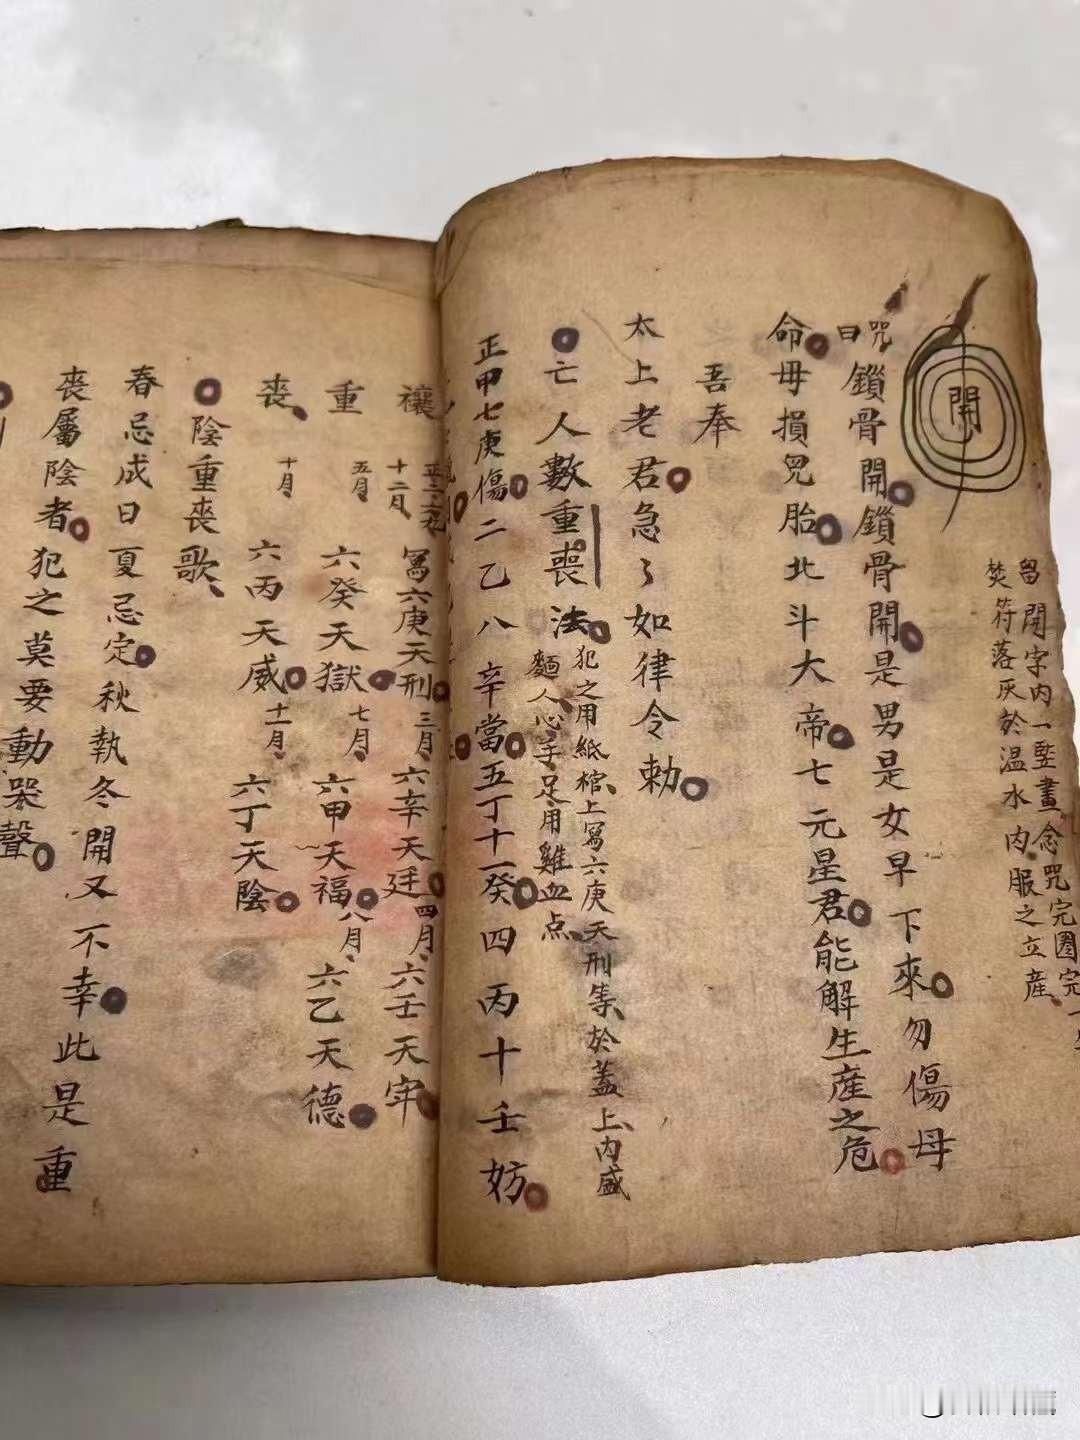 開
留開字内一竪畫念咒完圈完
焚符落灰於温水内服之立産
咒曰
鎖骨開鎖骨開是男是女早下來勿傷母
命母損兒胎北斗大帝七元星君能解生産之危
吾奉
太上老君急々如律令勅
亡人數重喪法
犯之用紙棺上寫六庚天刑等於蓋上内盛
麵人心手足用雞血点
正甲七庚傷二乙八辛當五丁十一癸四丙十壬妨
禳
十二月
寫六庚天刑三月六辛天廷四月六壬天牢
重五月六癸天獄七月六甲天福八月六乙天德
喪十月六丙天威十一月六丁天陰
陰重喪歌
春忌成日夏忌定秋執冬開又不幸此是重
喪屬陰者犯之莫要動哭聲